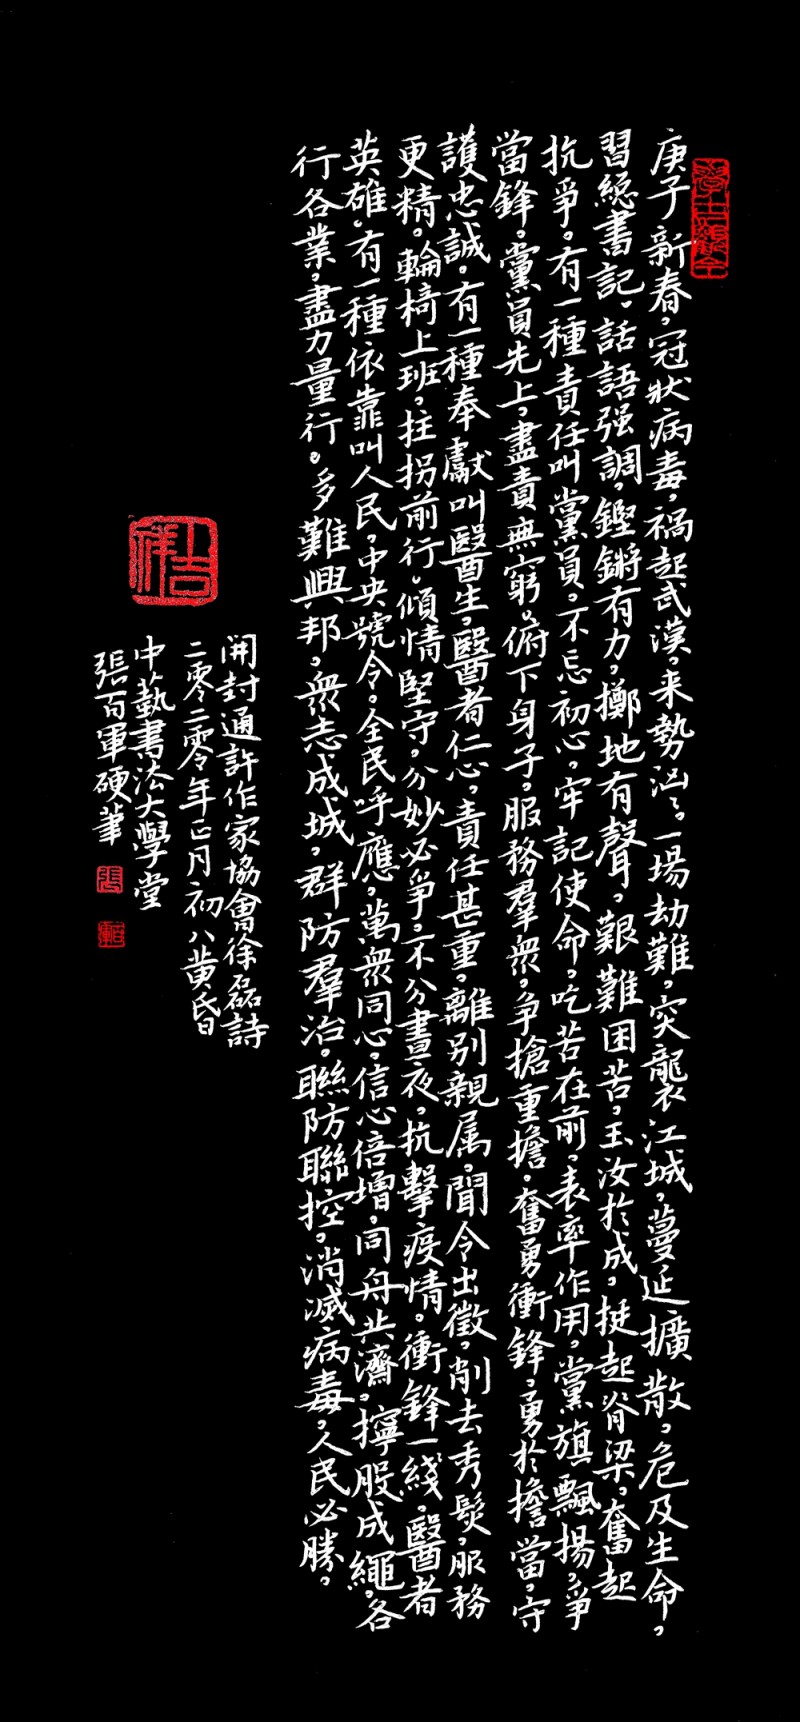 庚子新春，冠狀病毒，禍起武漢，来勢汹ミ。一場劫難，突襲江城，蔓延擴散，危及生命，
習總書記，話語强調，鏗鏘有力，擲地有聲，艱難困苦，玉汝於成，挺起脊梁，奮起
抗爭。有一種責任叫黨員，不忘初心，牢記使命，吃苦在前，表率作用，黨旗飄揚，爭
當鋒，黨員先上，盡責無窮。俯下身子，服務羣衆，争搶重擔，奮勇衝鋒，勇於擔當，守
護忠誠。有一種奉獻叫醫生，醫者仁心，責任甚重，離別親属，聞令出徵，削去秀髮，服務
更精。輪椅上班，拄拐前行。傾情堅守，分妙必爭，不分晝夜，抗擊疫情。衝鋒一綫，醫者
英雄。有一種依靠叫人民，中央號令。全民呼應，萬衆同心，信心倍增，同舟共濟，擰股成繩，各
行各業，盡力量行。多難興邦，衆志成城，群防羣治，聯防聯控，消滅病毒，人民必勝。
開封通許作家協會徐磊詩
二零二零年正月初八黄昏
中藝書法大學堂
張百軍硬筆
張